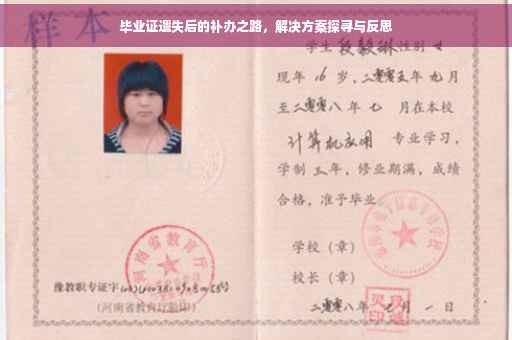 毕业证遗失后的补办之路，解决方案探寻与反思
样本
学生 段毅琳 性别 女
现年 16 岁，二零零五年 九月
至二零零八年 七 月在本校
计算机应用 专业学习，
学制 三 年，修业期满，成绩
合格，准予毕业
学校（章）
校长（章）
二零零八年 七 月 一 日
河南省教育厅
豫教职专证字
（河南省教育厅验印）